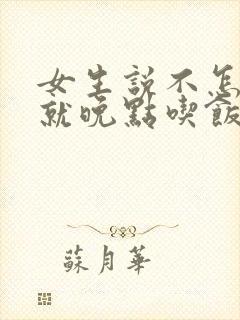 女生説不怎
就晚點喫飯
蘇月華